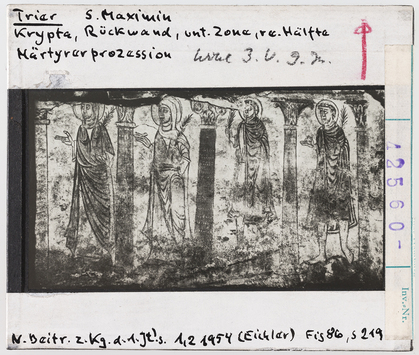 Trier S. Maximin
Krypta, Rückwand, unt. Zone, re. Hälfte
Märtyrerprozession
42560-
Inv.-Nr.
N. Beitr. z. Kg. d. 1. Jt's. 1,2 1954 (Eichler) Fig 86, S 219